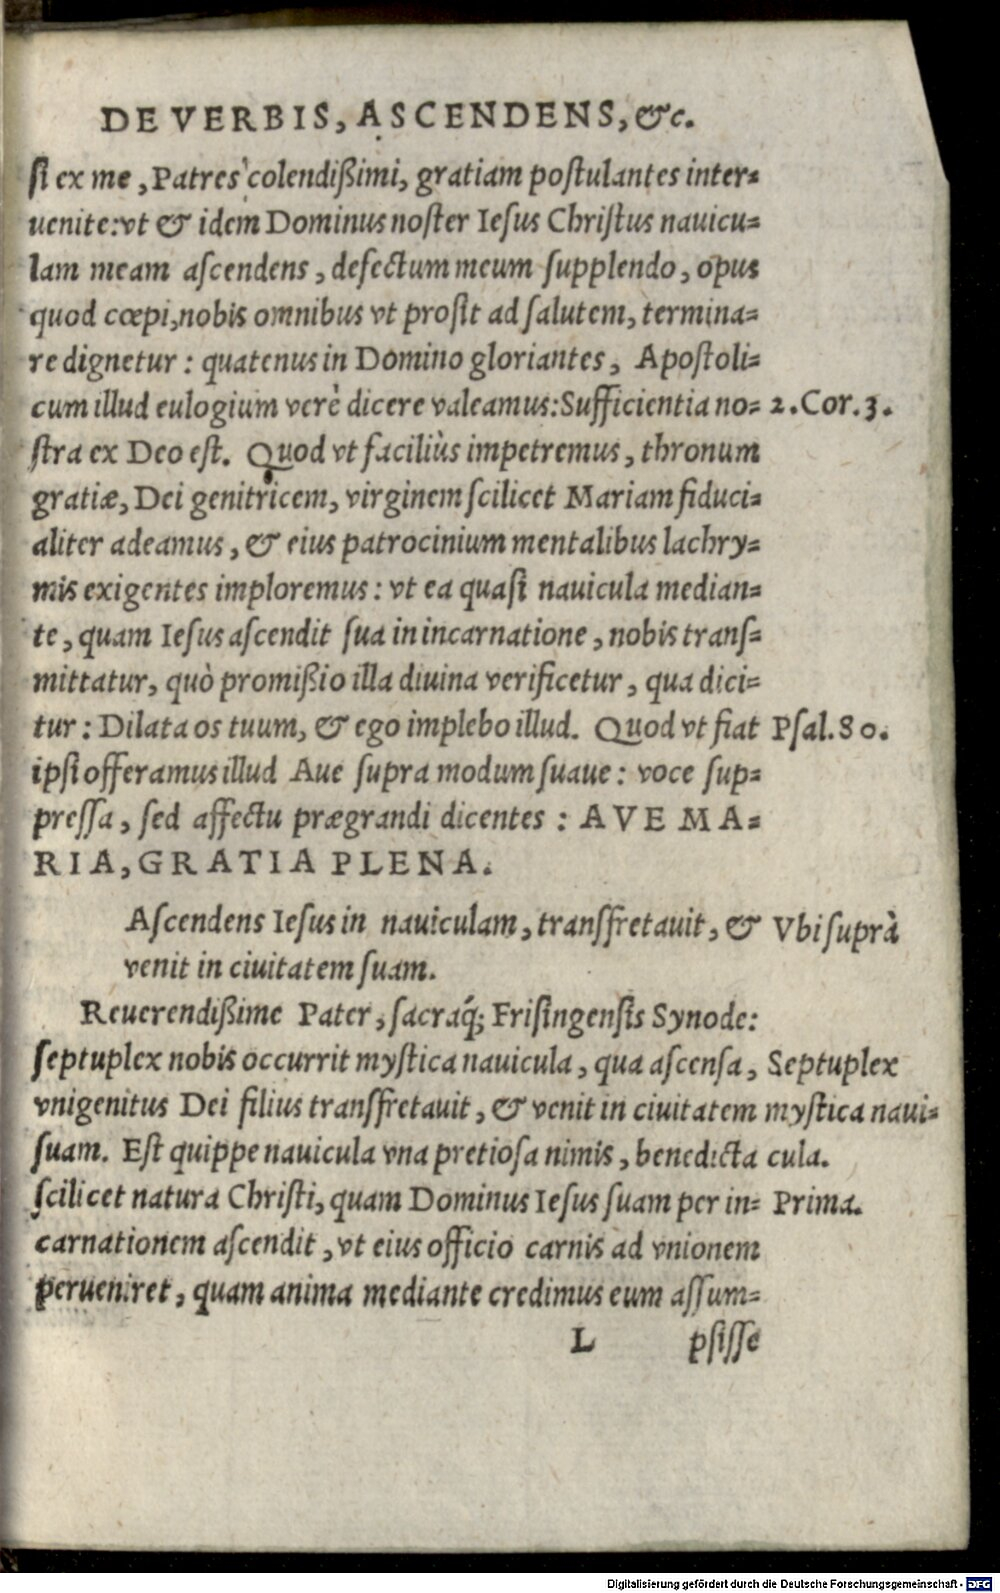 DE VERBIS, ASCENDENS, &c.
si ex me, Patres colendißimi, gratiam postulantes inter-
uenite: vt & idem Dominus noster Iesus Christus nauicu-
lam meam ascendens, defectum meum supplendo, opus
quod cœpi, nobis omnibus vt prosit ad salutem, termina-
re dignetur: quatenus in Domino gloriantes, Apostoli-
cum illud eulogium verè dicere valeamus: Sufficientia no- 2. Cor. 3.
stra ex Deo est. Quod vt faciliùs impetremus, thronum
gratiæ, Dei genitricem, virginem scilicet Mariam fiduci-
aliter adeamus, & eius patrocinium mentalibus lachry-
mis exigentes imploremus: vt ea quasi nauicula median-
te, quam Iesus ascendit sua in incarnatione, nobis trans-
mittatur, quò promißio illa diuina verificetur, qua dici-
tur: Dilata os tuum, & ego implebo illud. Quod vt fiat Psal. 80.
ipsi offeramus illud Aue supra modum suaue: voce sup-
pressa, sed affectu prægrandi dicentes: AVE MA-
RIA, GRATIA PLENA.
Ascendens Iesus in nauiculam, transfretauit, & Vbi suprà
venit in ciuitatem suam.
Reuerendißime Pater, sacraq́; Frisingensis Synode:
septuplex nobis occurrit mystica nauicula, qua ascensa, Septuplex
vnigenitus Dei filius transfretauit, & venit in ciuitatem mystica naui-
suam. Est quippe nauicula vna pretiosa nimis, benedicta cula.
scilicet natura Christi, quam Dominus Iesus suam per in- Prima.
carnationem ascendit, vt eius officio carnis ad vnionem
perueniret, quam anima mediante credimus eum assum-
L psisse
Digitalisierung gefördert durch die Deutsche Forschungsgemeinschaft - DFG